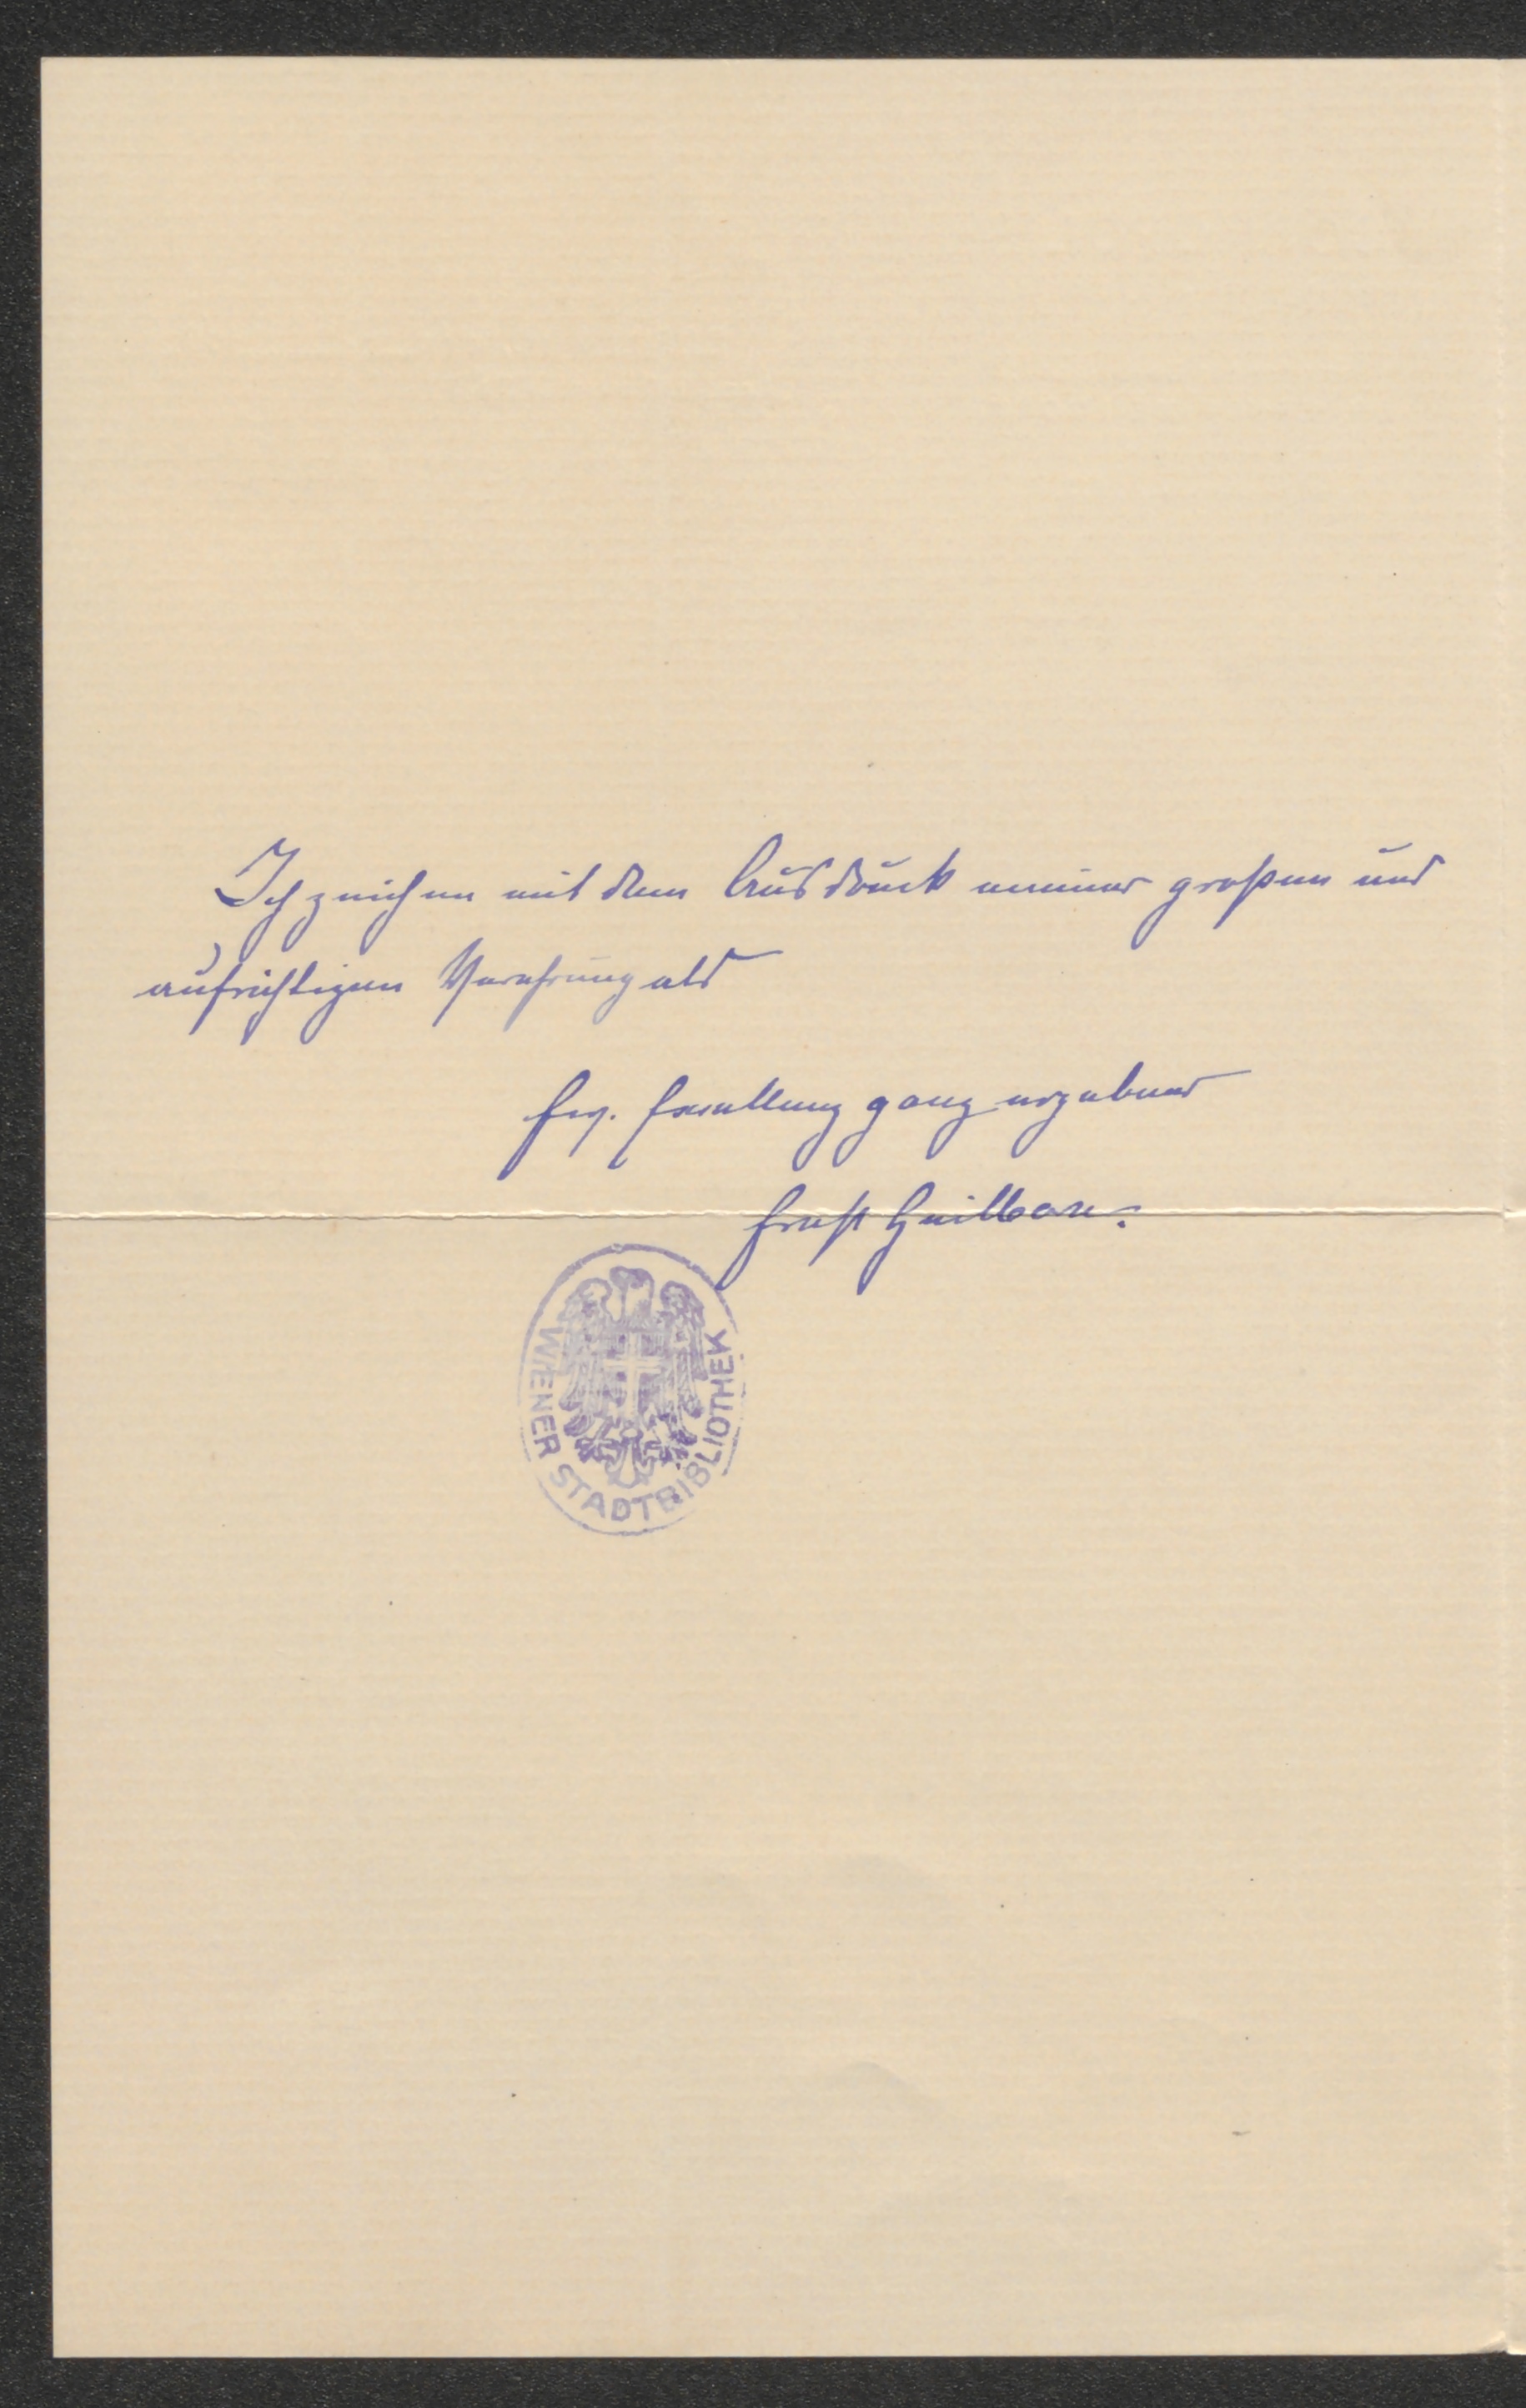 Ich zeichne mit dem Ausdruck meiner großen und
aufrichtigen Verehrung als
Ew. Excellenz ganz ergebener
Ernst
WIENER STADTBIBLIOTHEK